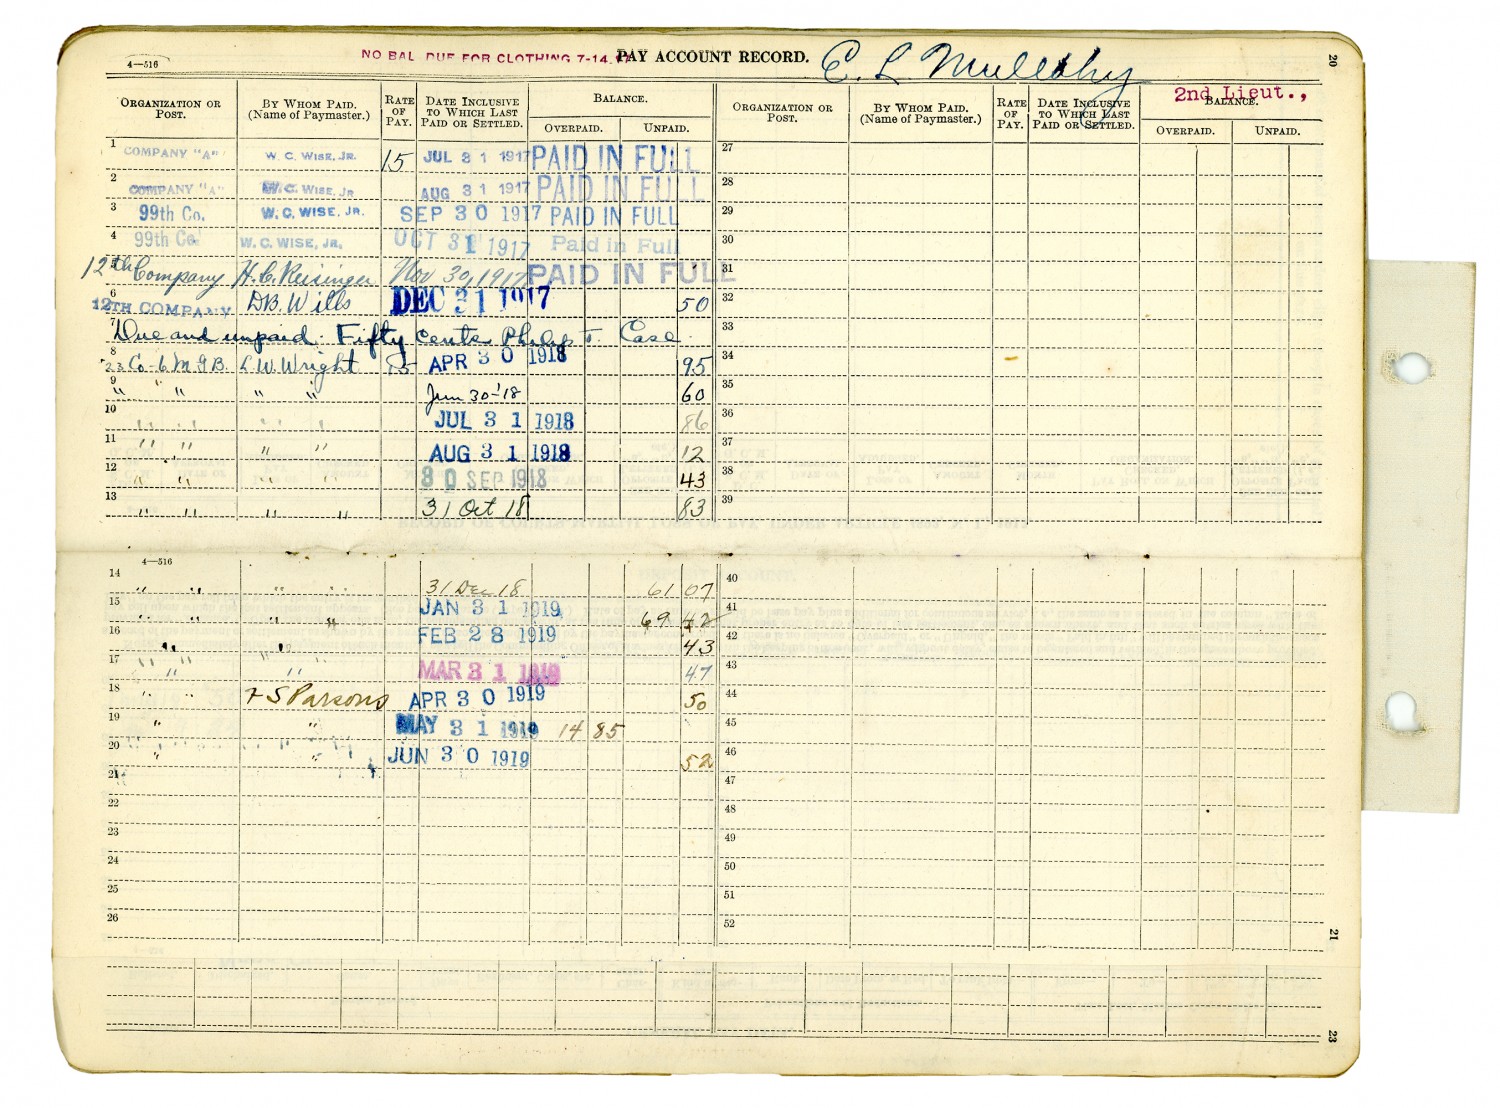 NO BAL DUE FOR CLOTHING 7-14-17
4—516
PAY ACCOUNT RECORD.
E. L. Mulledhy
2nd Lieut.,
20
ORGANIZATION OR POST. BY WHOM PAID. (Name of Paymaster.) RATE OF PAY. DATE INCLUSIVE TO WHICH LAST PAID OR SETTLED. BALANCE. OVERPAID. UNPAID.
ORGANIZATION OR POST. BY WHOM PAID. (Name of Paymaster.) RATE OF PAY. DATE INCLUSIVE TO WHICH LAST PAID OR SETTLED. BALANCE. OVERPAID. UNPAID.
1 COMPANY "A" W. C. WISE, JR. 15 JUL 31 1917 PAID IN FULL 27
2 COMPANY "A" W. C. WISE, JR. AUG 31 1917 PAID IN FULL 28
3 99th Co. W. C. WISE, JR. SEP 30 1917 PAID IN FULL 29
4 99th Co. W. C. WISE, JR. OCT 31 1917 Paid in Full 30
5 12th Company H. C. Reisinger Nov 30, 1917 PAID IN FULL 31
6 12TH COMPANY D.B. Wills DEC 31 1917 50 32
7 Due and unpaid. Fifty cents Philip T. Case. 33
8 23 Co-6 M.G.B. L. W. Wright APR 30 1918 95 34
9 " " " " Jun 30-'18 60 35
10 " " JUL 31 1918 86 36
11 " " " " AUG 31 1918 12 37
12 " " " " 30 SEP 1918 43 38
13 " " " " 31 Oct 18 83 39
4—516
14 " " " " 31 Dec 18 61 07 40
15 " " " " JAN 31 1919, 69 42 41
16 " " FEB 28 1919 43 42
17 " " " " MAR 31 1919 47 43
18 " " F S Parsons APR 30 1919 50 44
19 " " MAY 31 1919 14 85 45
20 " " JUN 30 1919 52 46
21 47
22 48
23 49
24 50
25 51
26 52
21
23